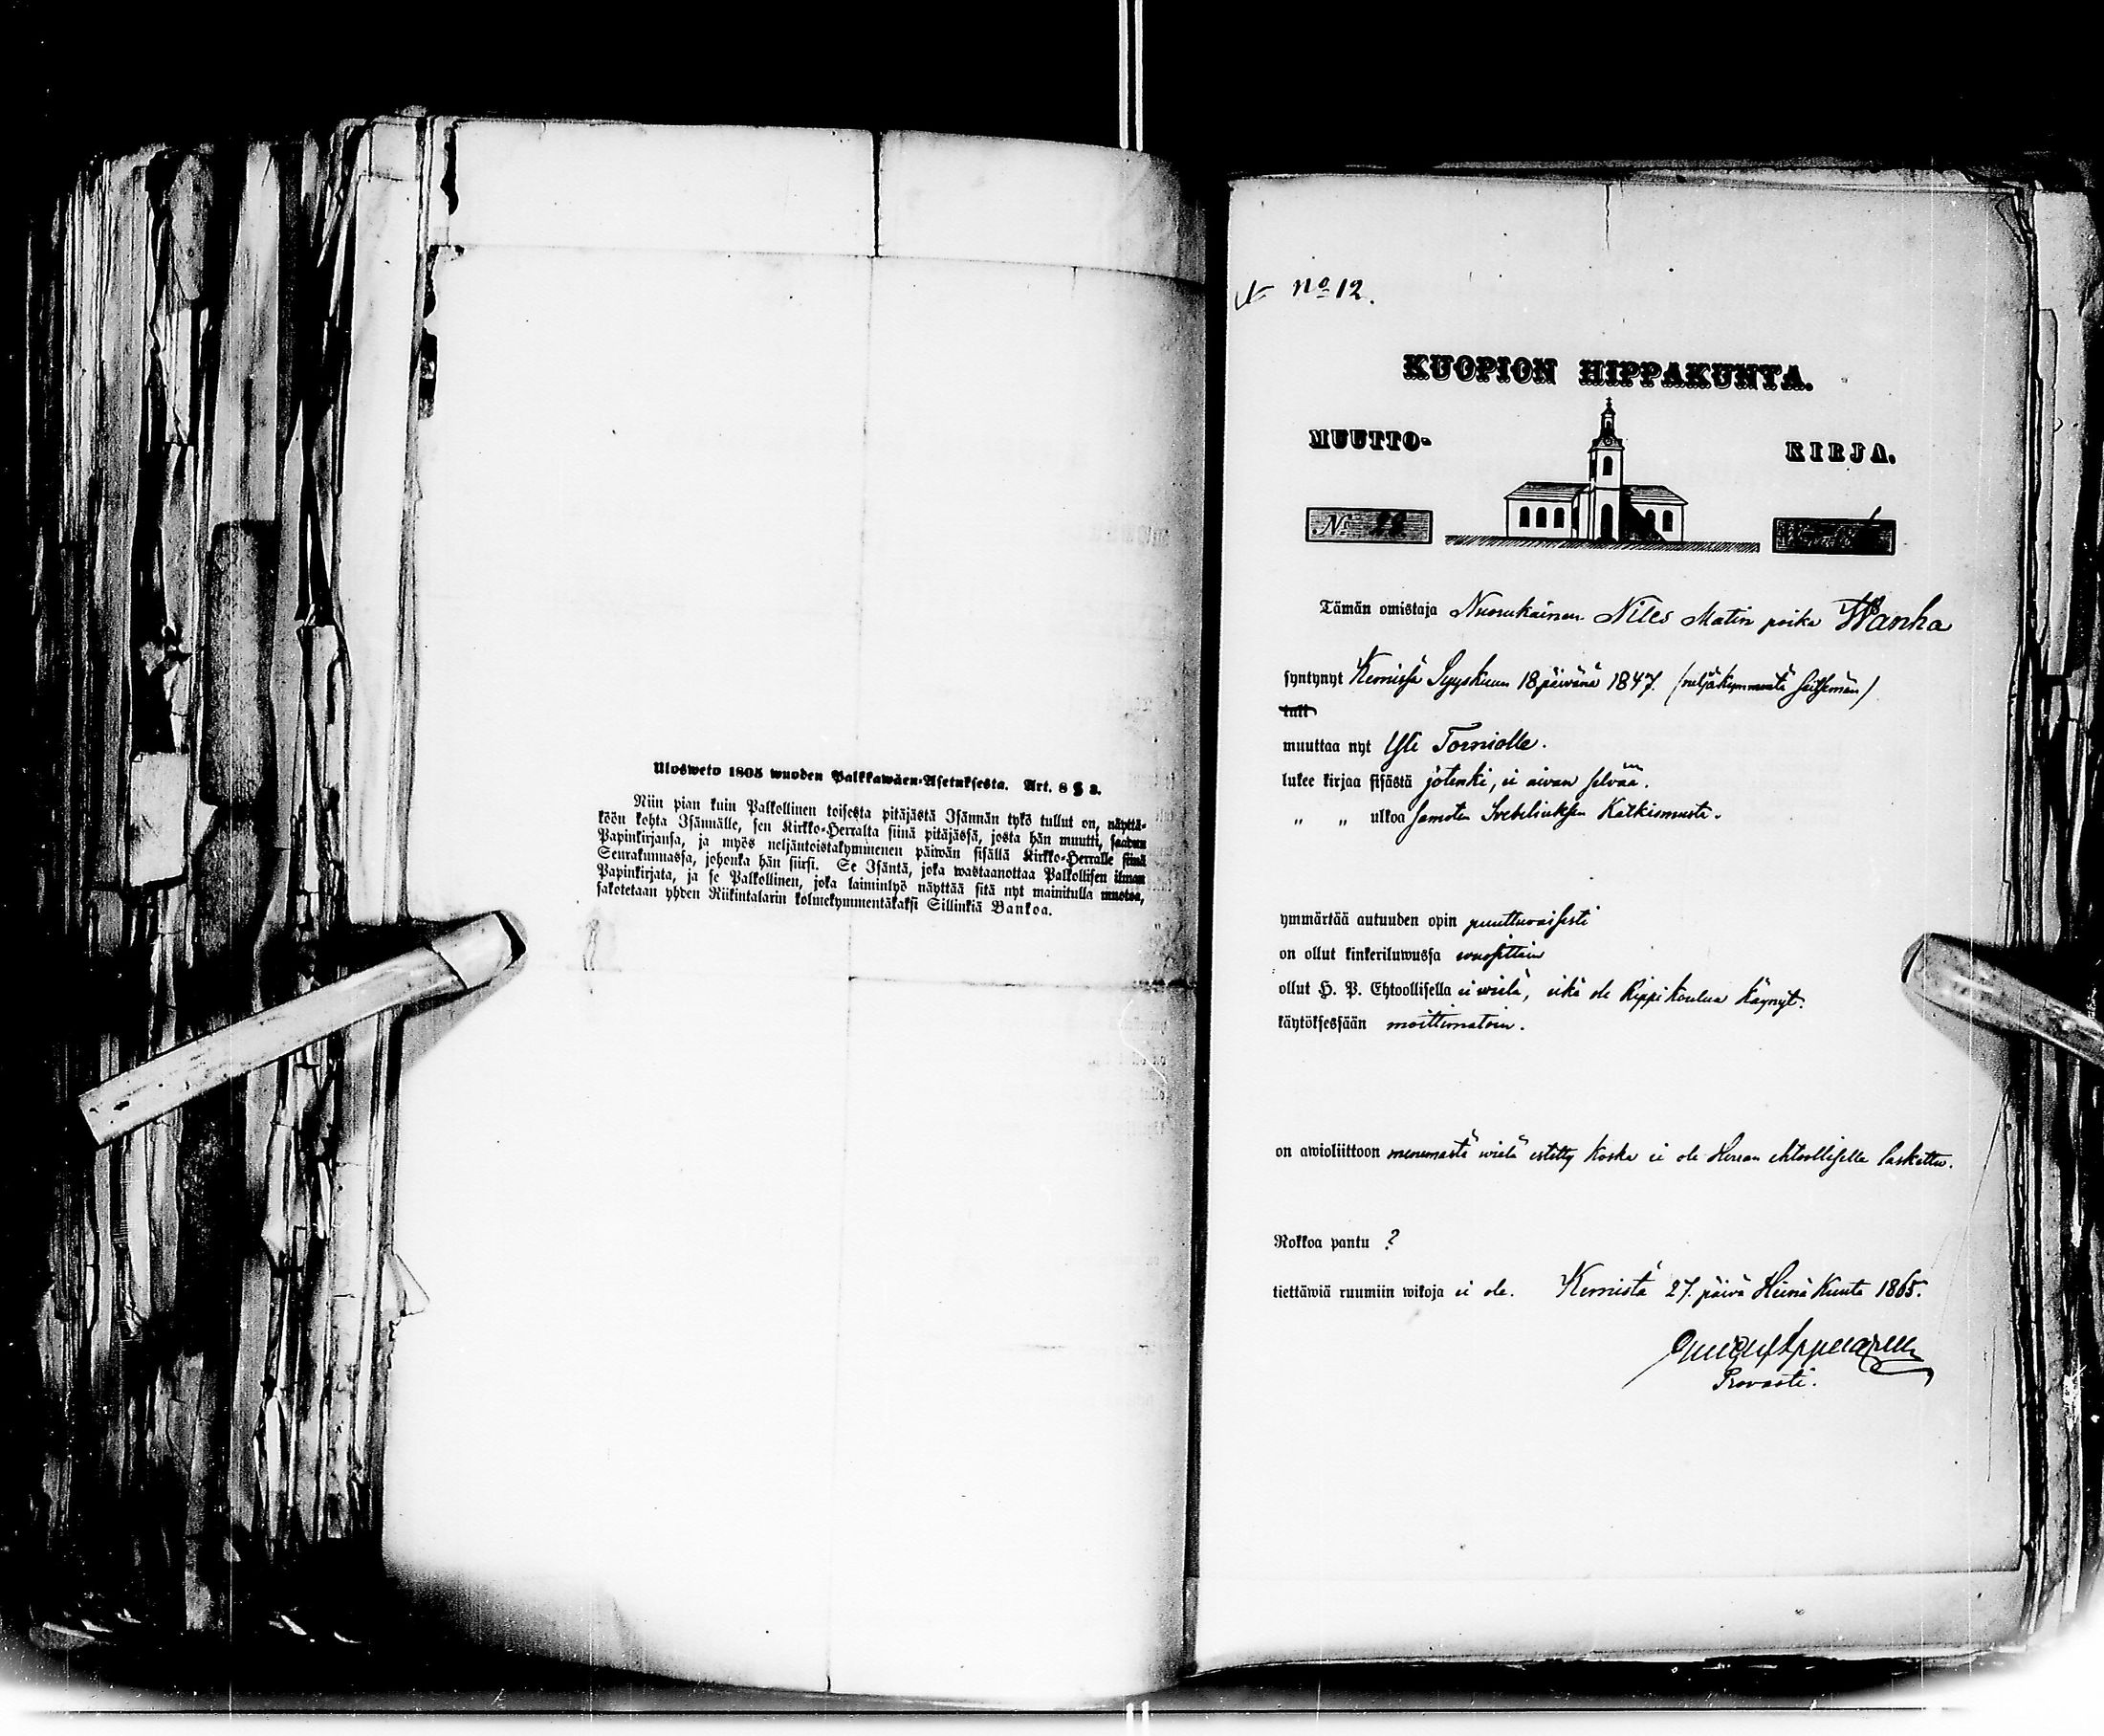 Ulosweto 1805 wuoden Palkkawäen-Asetuksesta. Art. 8 § 3.
Niin pian kuin Palkollinen toisesta pitäjästä Isännän tykö tullut on, näyttä-
köön kohta Isännälle, sen Kirkko-Herralta siinä pitäjässä, josta hän muutti, saadun
Papinkirjansa, ja myös neljäntoistakymmenen päiwän sisällä Kirkko-Herralle siinä
Seurakunnassa, johonka hän siirsi. Se Isäntä, joka wastaanottaa Palkollisen ilman
Papinkirjata, ja se Palkollinen, joka laiminlyö näyttää sitä nyt mainitulla muotoa,
sakotetaan yhden Riikintalarin kolmekymmentäkaksi Sillinkiä Bankoa.
No 12.
KUOPION HIPPAKUNTA.
MUUTTO- KIRJA.
No 22
Tämän omistaja Nuorukainen Nils Matin poika Wanha
syntynyt Kemissä Syyskuun 18 päivänä 1847. (neljäkymmentä seitsemän)
tull
muuttaa nyt Yli Torniolle.
lukee kirjaa sisästä jotenki, ei aivan selvään.
" " ulkoa samoten Svebeliuksen Katkismusta.
ymmärtää autuuden opin puuttuvaisesti
on ollut kinkeriluwussa vuosittain
ollut H. P. Ehtoollisella ei wielä, eikä ole Rippikoulua käynyt.
käytöksessään moittimatoin.
on awioliittoon menemästä wielä estetty koska ei ole Herran ehtoollisella laskettu.
Rokkoa pantu ?
tiettäwiä ruumiin wikoja ei ole. Kemistä 27. päivä Heinä Kuuta 1865.
Provasti.